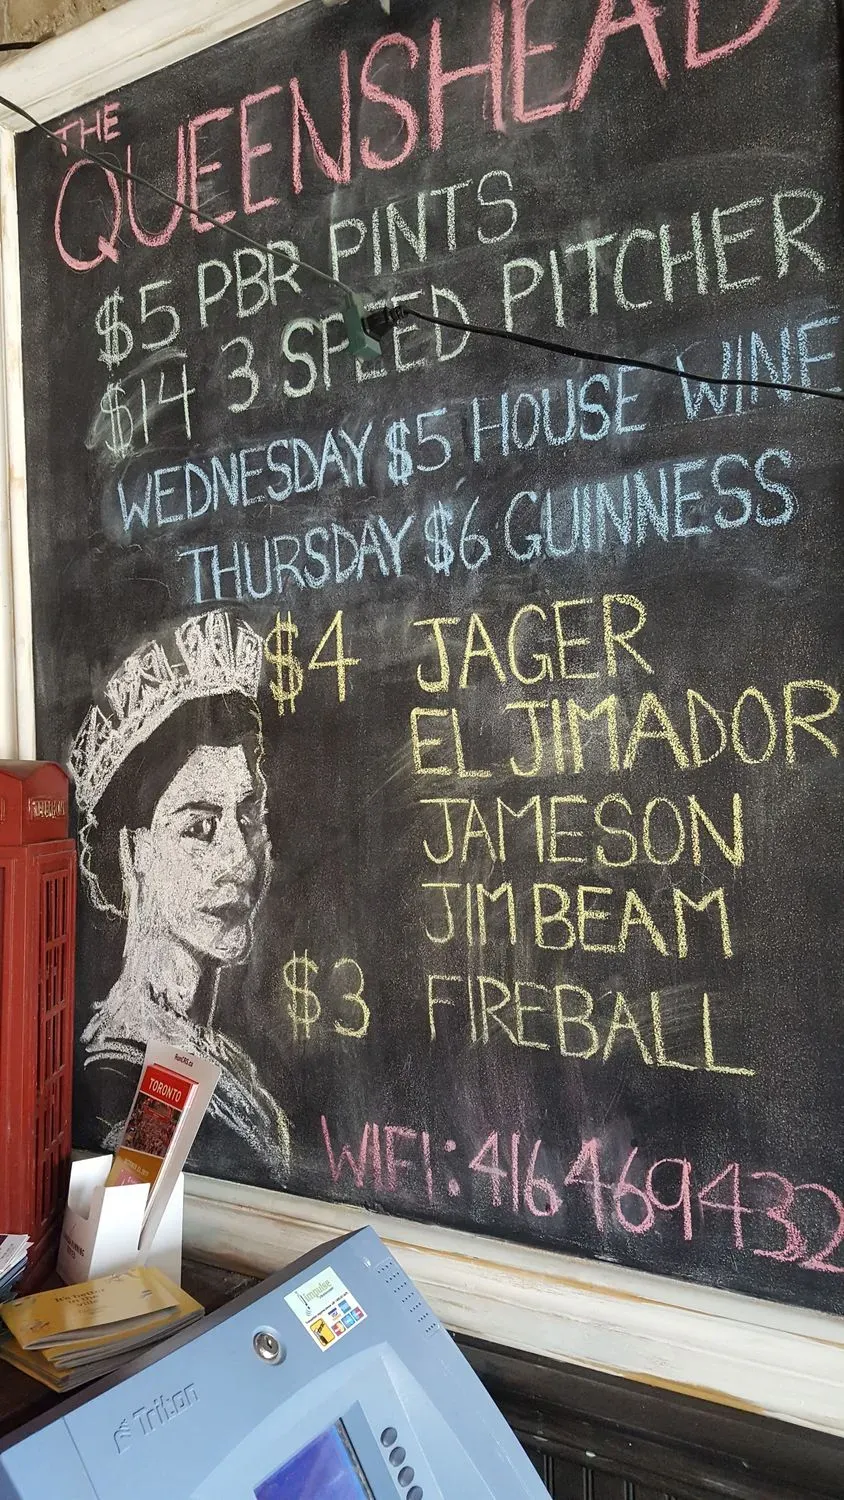 THE
QUEENSHEAD
$5 PBR PINTS
$14 3 SPEED PITCHER
WEDNESDAY $5 HOUSE WINE
THURSDAY $6 GUINNESS
$4 JAGER
EL JIMADOR
JAMESON
JIM BEAM
$3 FIREBALL
WIFI: 416469432
TORONTO
It's better
in the
Triton
impulse